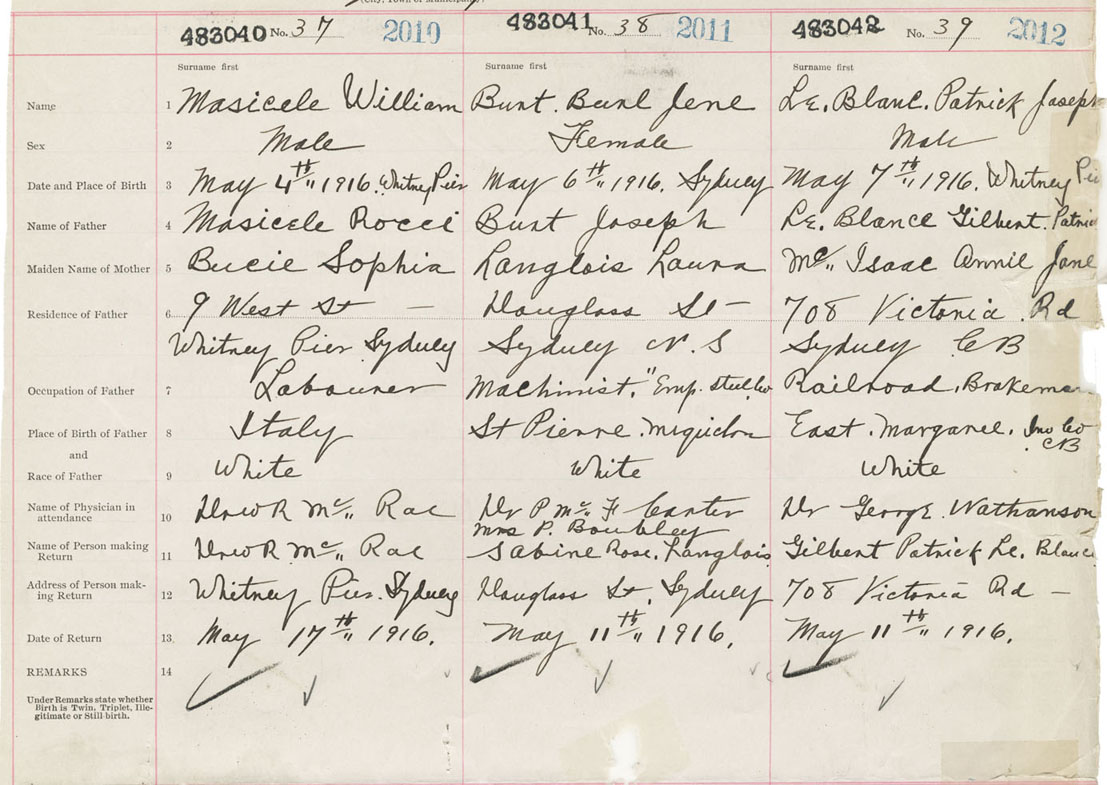 (City, Town or Municipality)
483040 No. 37 2010 483041 No. 38 2011 483042 No. 39 2012
Surname first Surname first Surname first
Name 1 Masicele William Burt. Burl Jene Le. Blanc. Patrick Joseph
Sex 2 Male Female Male
Date and Place of Birth 3 May 4th 1916. Whitney Pier May 6th 1916. Sydney May 7th 1916. Whitney Pie
Name of Father 4 Masicele Rocci Burt Joseph Le. Blance Gilbert. Patric
Maiden Name of Mother 5 Bucie Sophia Langlois Laura Mc Isaac Annie Jane
Residence of Father 6 9 West St — Douglass St — 708 Victoria Rd
Whitney Pier Sydney Sydney N. S Sydney CB
Occupation of Father 7 Labourer Machinist, "Emp. Steel Co Railroad. Brakeman
Place of Birth of Father 8 Italy St Pierre. Miquelon East. Margaree. Inv Co CB
and
Race of Father 9 White White White
Name of Physician in
attendance 10 Drew R Mc Rae Dr P Mc F Carter Dr George. Nathanson
Mrs P.
Name of Person making
Return 11 Drew R Mc Rae Sabine Rose. Langlois Gilbert Patrick Le. Blance
Address of Person mak-
ing Return 12 Whitney Pier. Sydney Douglass St, Sydney 708 Victoria Rd —
Date of Return 13 May 17th 1916. May 11th 1916. May 11th 1916.
REMARKS 14
Under Remarks state whether
Birth is Twin, Triplet, Ille-
gitimate or Still-birth.